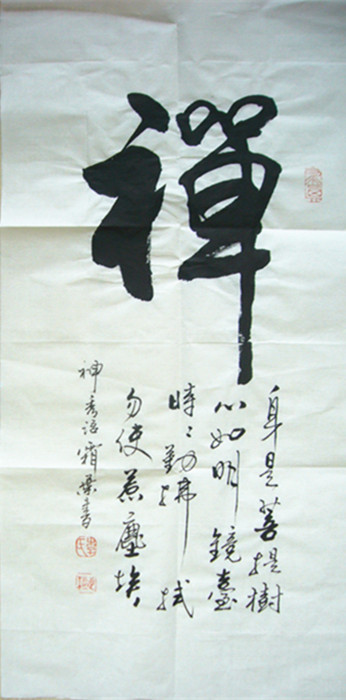 禪
身是菩提樹
心如明鏡臺
時〻勤拂拭
勿使惹塵埃
神秀語霜葉書